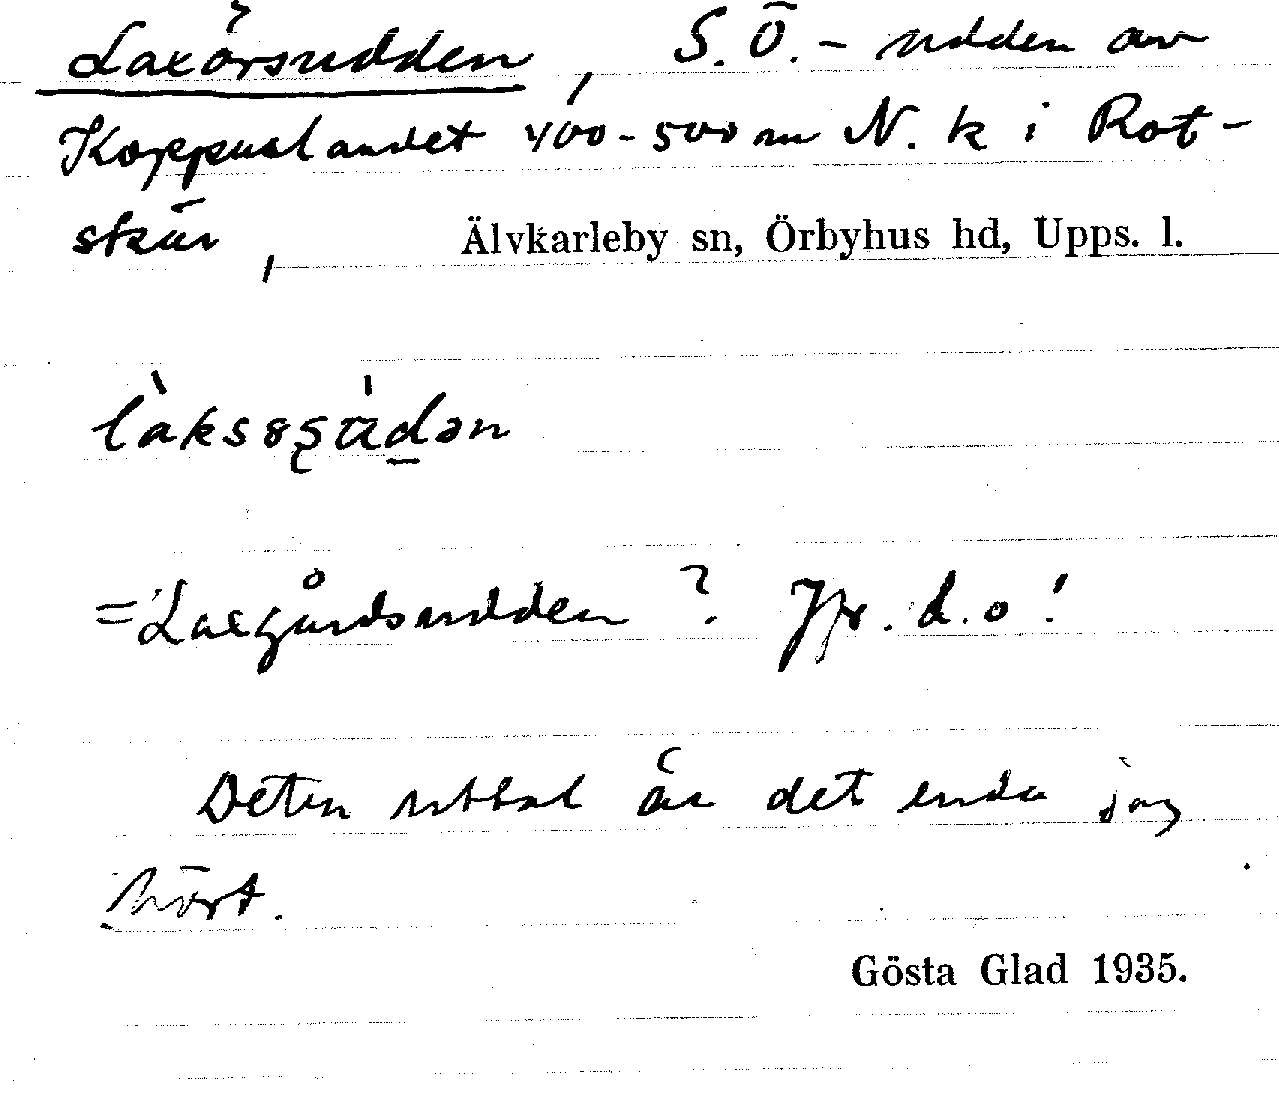 Laxörsudden, S.Ö.-udden av
Koppuslandet 400-500 m N. k i Rot-
skär, Älvkarleby sn, Örbyhus hd, Upps. l.
=Laxgårdsudden? Jfr. d.o!
Detta uttal är det enda jag
hört.
Gösta Glad 1935.